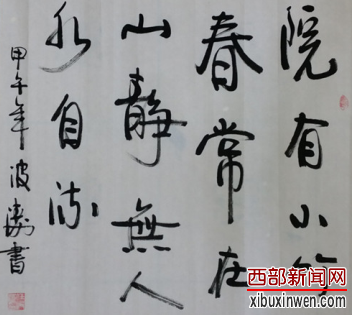 院有小竹
春常在
山靜無人
水自流
甲午年波書
西部新闻网
xibuxinwen.com